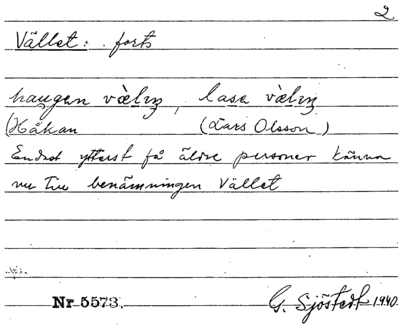 2
Vället: forts
haugen vàlıɳ, lasa vàlıɳ
(Håkan (Lars Olsson)
Endast ytterst få äldre personer känna
nu till benämningen Vället
Nr 5573. G. Sjöstedt 1940